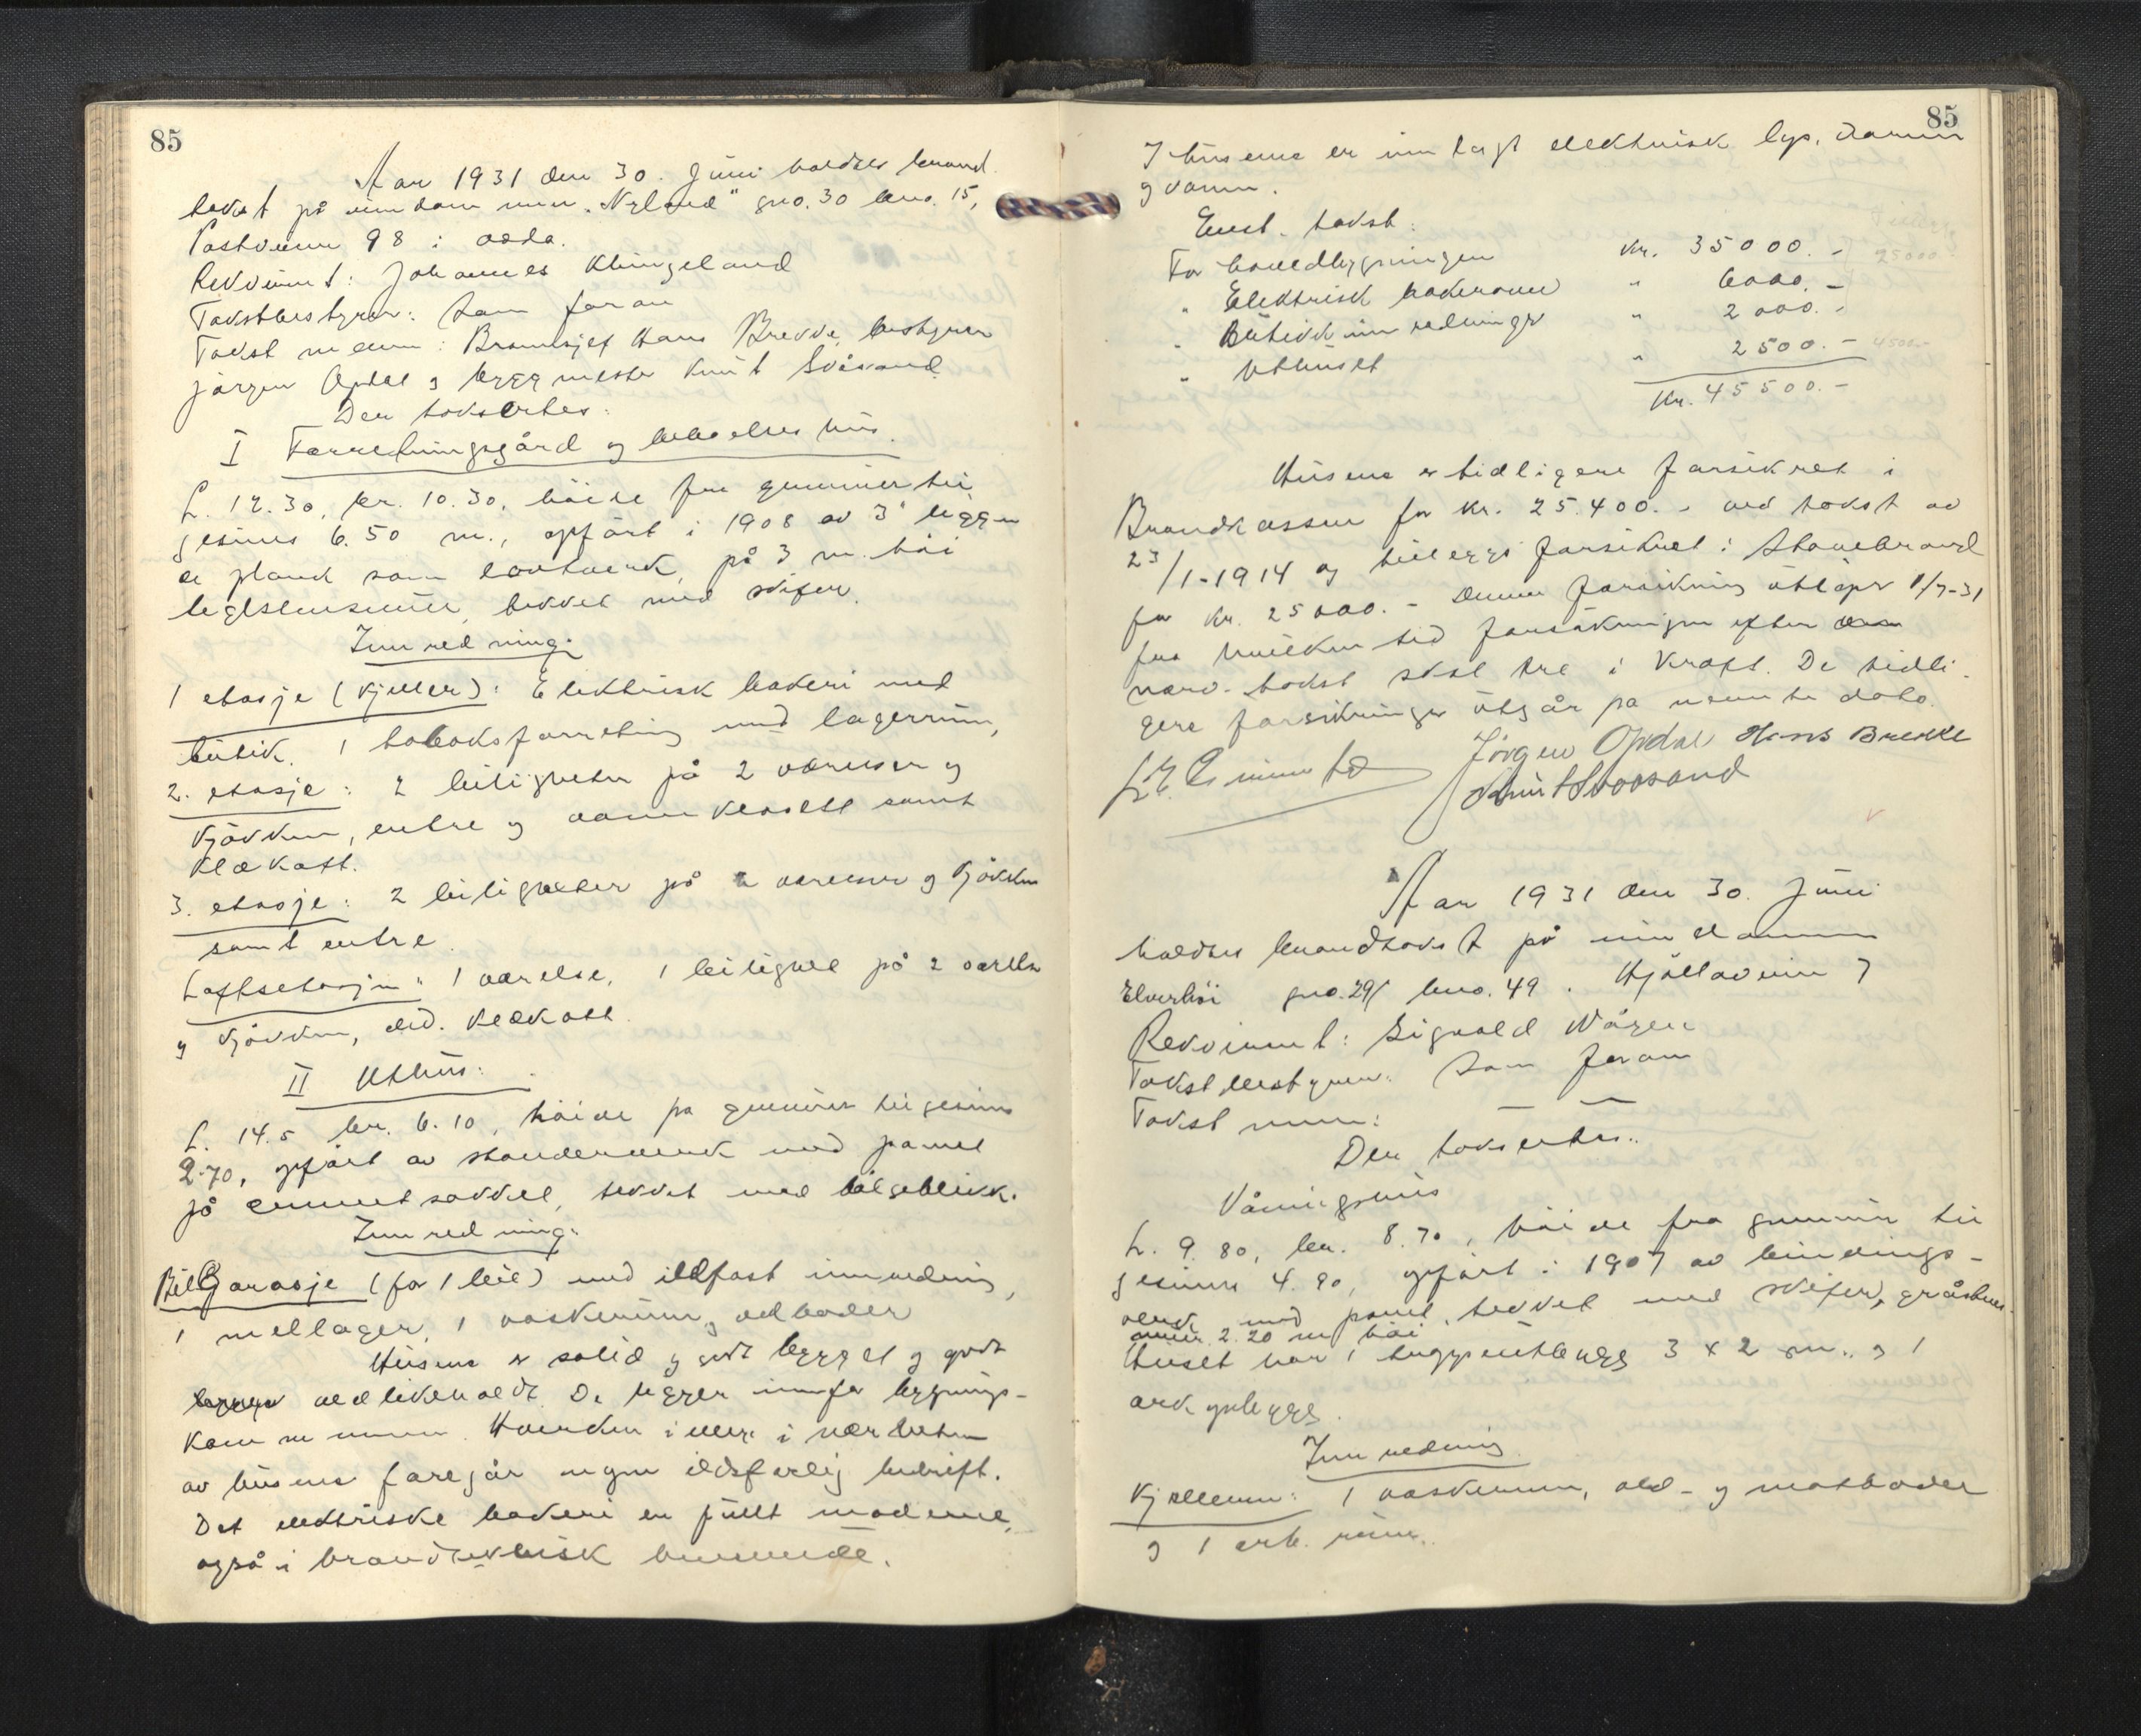 85
Aar 1931 den 30. Juni holdtes brand
takst på eiendommen "Nyland" gno. 30 bno. 15,
Postveien 98 i Odda.
Rekvirent: Johannes Klungeland
Takstbestyrer: Som foran
Takst menn: Brandsjef Hans Brekke, bestyrer
Jørgen Opdal og byggmester Knut Svåsand
Der takseertes:
I Forretningsgård og beboelses hus.
L. 12.30, br. 10.30, höide fra grunmur til
gesims 6.50 m., opfört i 1908 av 3" ligge-
de plank som lavtverk, på 3 m. höi
teglstensmur, tekket med skifer.
Innredning:
1 etasje (kjeller): Elektrisk bakeri med
butik, 1 tobaksforretning med lagerrum,
2. etasje: 2 leiligheter på 2 værelser og
kjökken, entre og vannklosett samt
klekott.
3. etasje: 2 leiligheter på 2 værelser og kjökken
samt entre.
Loftsetasjen: 1 værelse, 1 leilighet på 2 værelser
og kjökken, div. klekott.
II Uthus:
L. 14.5 br. 6.10, höide fra grunmur til gesims
2.70, opfört av standerverk med panel
på cementsokkel, tekket med bölgeblikk.
Innredning:
Bil Garasje (for 1 bil) med ildfast innredning,
1 mellager, 1 vaskerum og vedboder
Husene er solid og godt bygget og godt
vedlikeholdt. De ligger innfor bygnings-
kommunen. Hverken i eller i nærheten
av husene foregår nogen ildsfarlig bedrift.
Det elektriske bakeri er fullt moderne,
også i brandteknisk henseende.
85
I husene er inn lagt elektrisk lys, varme
og vann.
Enst. takst:
For hovedbygningen kr. 35000.-
25000
" Elektrisk bakerovn " 6000.-
" Butikkinnredninger " 2000.-
" Uthuset " 2500.-
4500.-
Kr. 45500.-
Husene er tidligere forsikret i
Brandkassen for kr. 25.400.- ved takst av
23/1-1914 og tilleggsforsikret i Storebrand
for kr. 25000.- Denne forsikring utlöper 1/7-31
fra hvilken tid forsikringen efter
nærv. takst skal tre i kraft. De tidli-
gere forsikringer utgår på nevnte dato.
Jörgen Opdal Hans Brekke
Knut Svaasand
Aar 1931 den 30. Juni
holdtes brandtakst på eiendommen
Elverhöi gno. 29 bno. 49. Hjöllaveien 7
Rekvirent: Sigvald Någen
Takstbestyrer: Som foran
Takst menn: — —
Der takseertes:
Våningshus
L. 9.80, br. 8.70, höide fra grunmur til
gesims 4.90, opfört i 1907 av bindings-
verk med panel, tekket med skifer, gråstens-
mur 2.20 m höi
Huset har 1 trappeutbygg 3 x 2 m. og 1
ark opbygg.
Innredning
Kjelleren: 1 vaskerum, ved- og matboder
og 1 arb. rum.